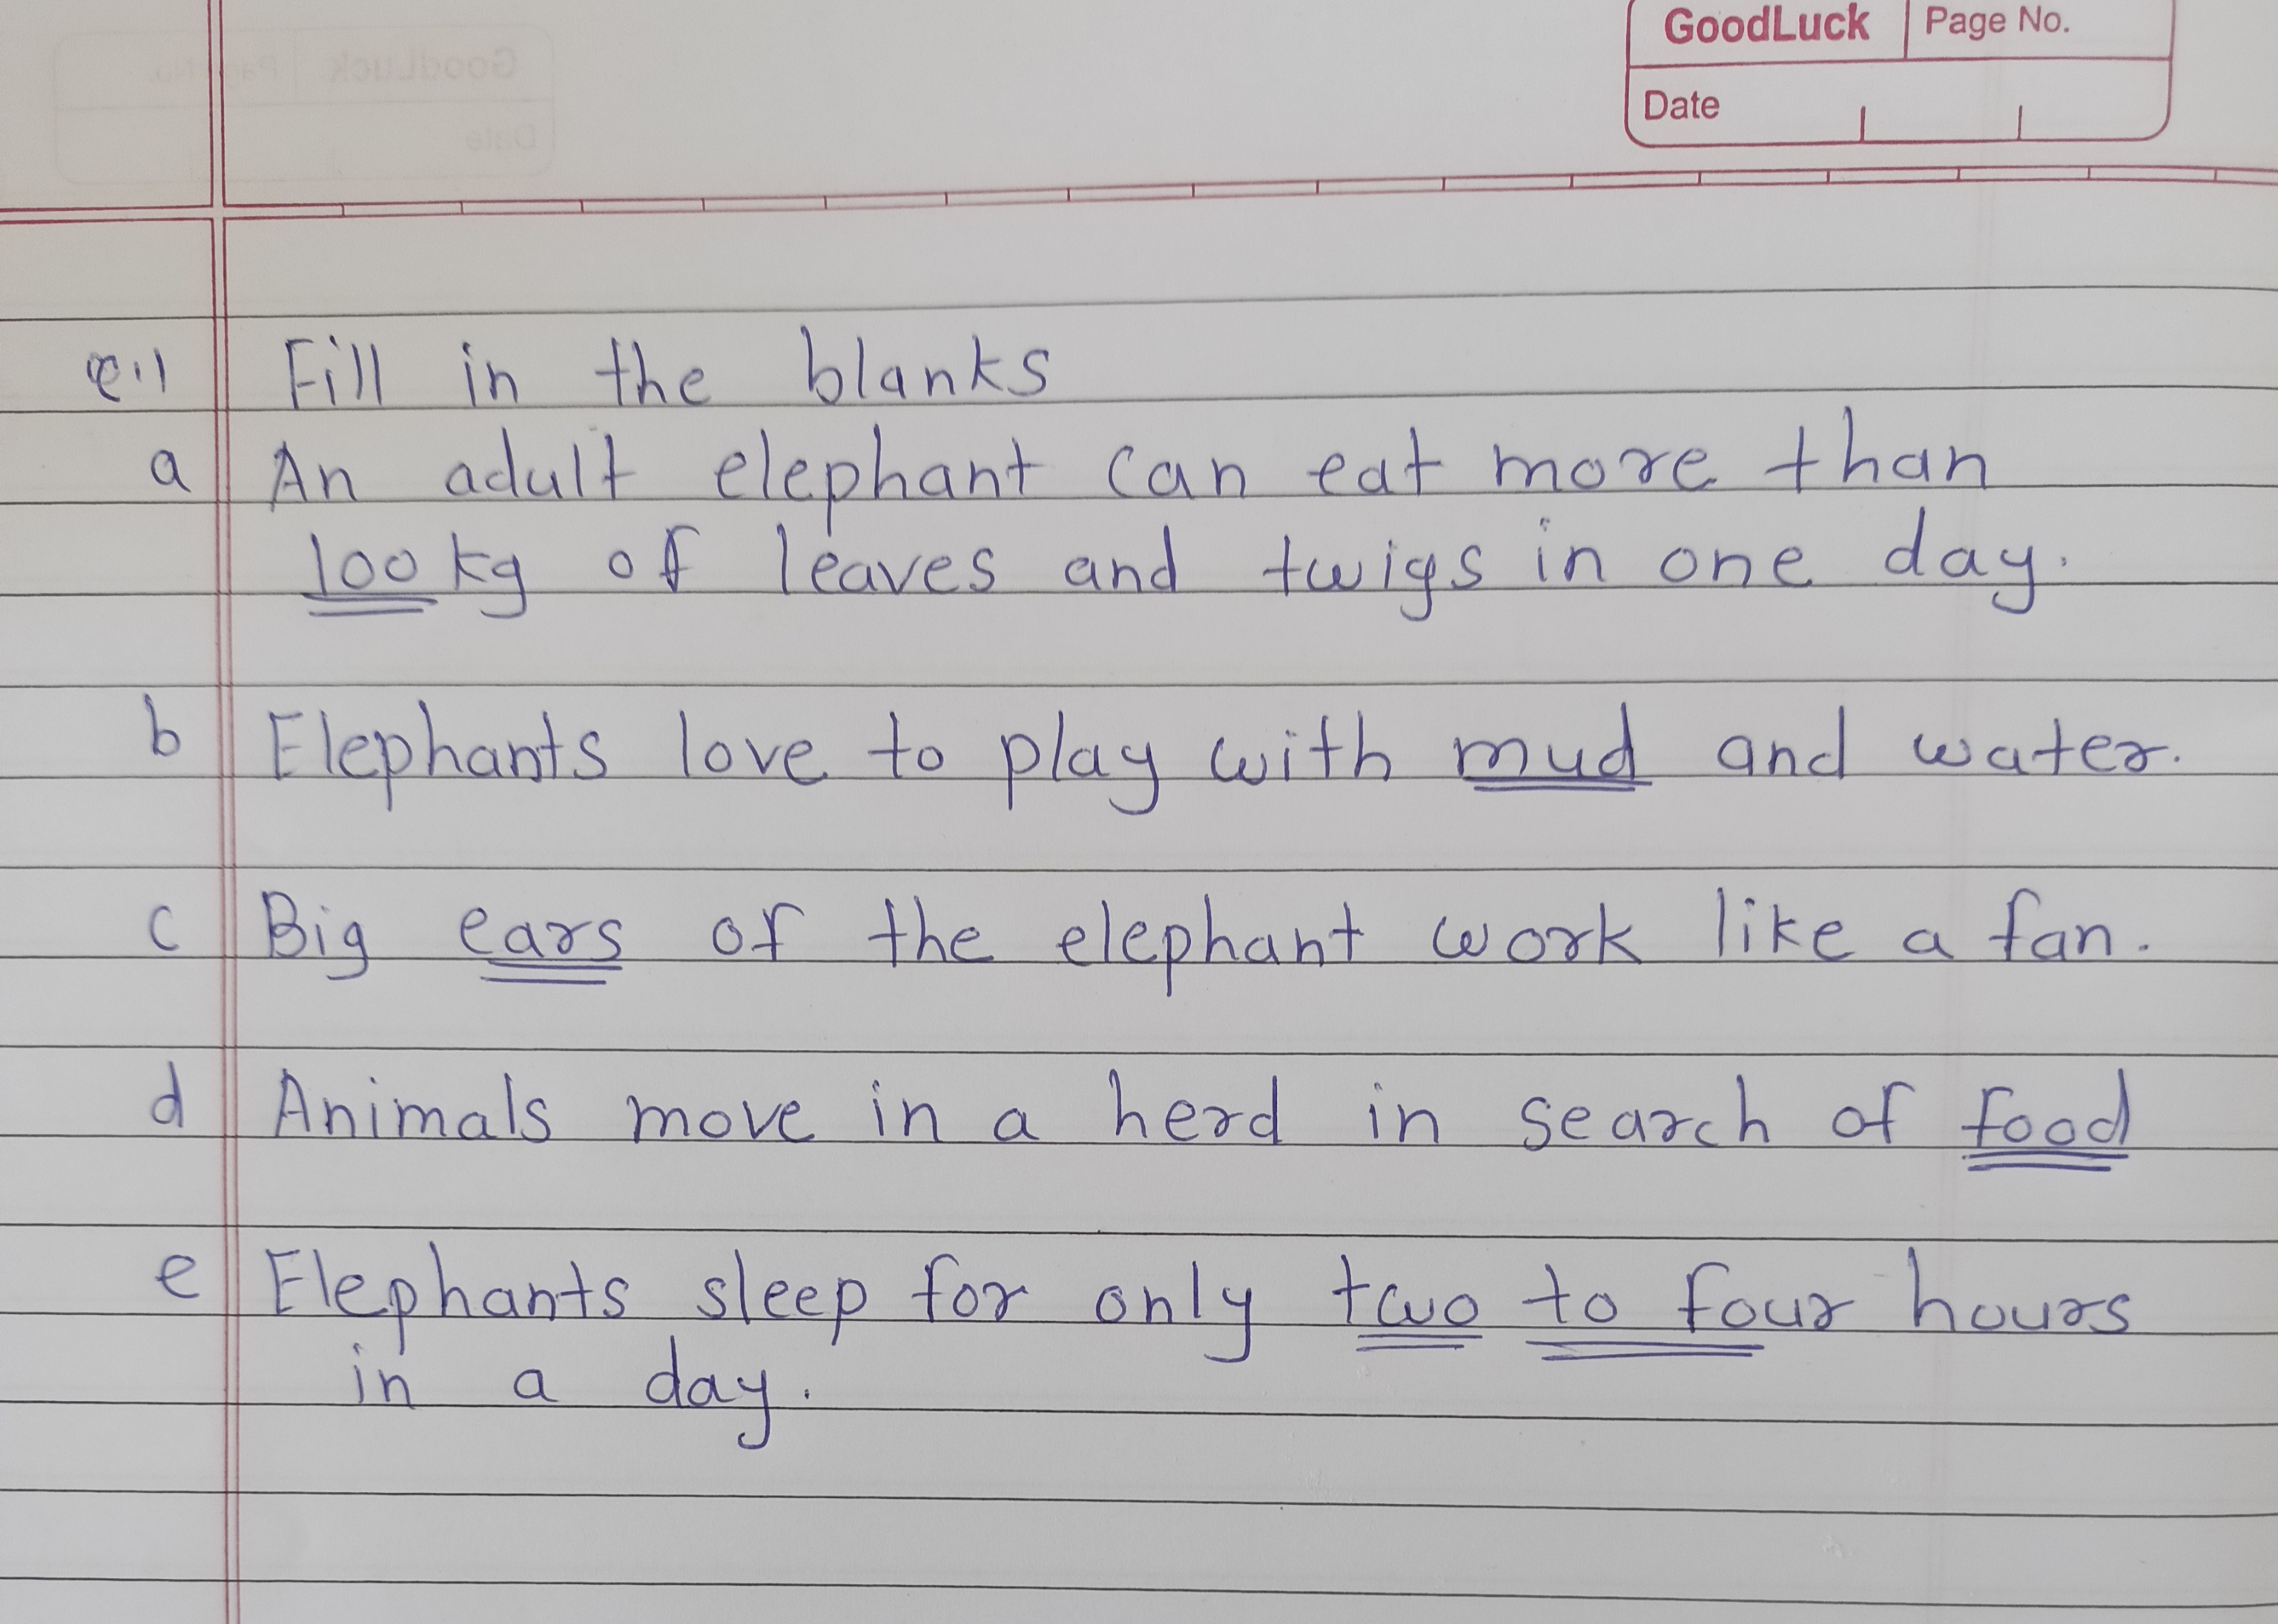 GoodLuck Page No.
Date
Q.1 Fill in the blanks
a An adult elephant can eat more than
100 kg of leaves and twigs in one day.
b Elephants love to play with mud and water.
c Big ears of the elephant work like a fan.
d Animals move in a herd in search of food
e Elephants sleep for only two to four hours
in a day.